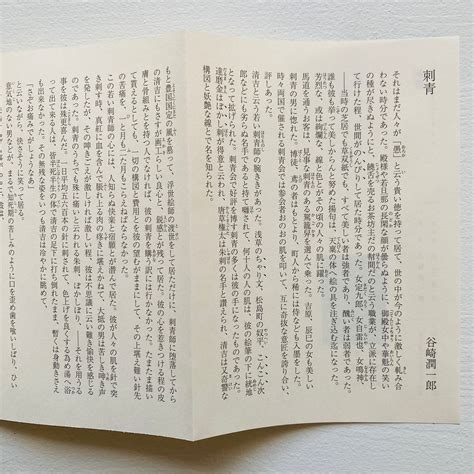 刺青
谷崎潤一郎
それはまだ人々が「愚」と云う貴い徳を持って居て、世の中が今のように激しく軋み合
わない時分であった。殿様や若旦那の長閑な顔が曇らぬように、御殿女中や華魁の笑い
の種が尽きぬようにと、饒舌を売るお茶坊主だの幇間だのと云う職業が、立派に存在し
て行けた程、世間がのんびりして居た時分であった。女定九郎、女自雷也、女鳴神、
――当時の芝居でも草双紙でも、すべて美しい者は強者であり、醜い者は弱者であった。
誰も彼も挙って美しからんと努めた揚句は、天稟の体へ絵の具を注ぎ込む迄になった。
芳烈な、或は絢爛な、線と色とがその頃の人々の肌に躍った。
馬道を通うお客は、見事な刺青のある駕籠舁を選んで乗った。吉原、辰巳の女も美しい
刺青の男に惚れた。博徒、鳶の者はもとより、町人から稀には侍なども入墨をした。
時々両国で催される刺青会では参会者おのおの肌を叩いて、互に奇抜な意匠を誇り合い、
評しあった。
清吉と云う若い刺青師の腕ききがあった。浅草のちゃり文、松島町の奴平、こんこん次
郎などにも劣らぬ名手であると持て囃されて、何十人の人の肌は、彼の絵筆の下に絖地
となって拡げられた。刺青会で好評を博す刺青の多くは彼の手になったものであった。
達磨金はぼかし刺が得意と云われ、唐草権太は朱刺の名手と讃えられ、清吉は又奇警な
構図と妖艶な線とで名を知られた。
もと豊国国貞の風を慕って、浮世絵師の渡世をして居ただけに、刺青師に堕落してから
の清吉にもさすが画工らしい良心と、鋭感とが残って居た。彼の心を惹きつける程の皮
膚と骨組みとを持つ人でなければ、彼の刺青を購う訳には行かなかった。たまたま描い
て貰えるとしても、一切の構図と費用とを彼の望むがままにして、その上堪え難い針先
の苦痛を、一と月も二た月もこらえねばならなかった。
この若い刺青師の心には、人知らぬ快楽と宿願とが潜んで居た。彼が人々の肌を針で突
き刺す時、真紅に血を含んで脹れ上る肉の疼きに堪えかねて、大抵の男は苦しき呻き声
を発したが、その呻きごえが激しければ激しい程、彼は不思議に云い難き愉快を感じる
のであった。刺青のうちでも殊に痛いと云われる朱刺、ぼかしぼり、――それを用うる
事を彼は殊更喜んだ。一日平均五六百本の針に刺されて、色上げを良くする為め湯へ浴
って出て来る人は、皆半死半生の体で清吉の足下に打ち倒れたまま、暫くは身動きさえ
も出来なかった。その無残な姿をいつも清吉は冷やかに眺めて、
「さぞお痛みでがしょうなあ」
と云いながら、快さそうに笑って居る。
意気地のない男などが、まるで知死期の苦しみのように口を歪め歯を喰いしばり、ひい